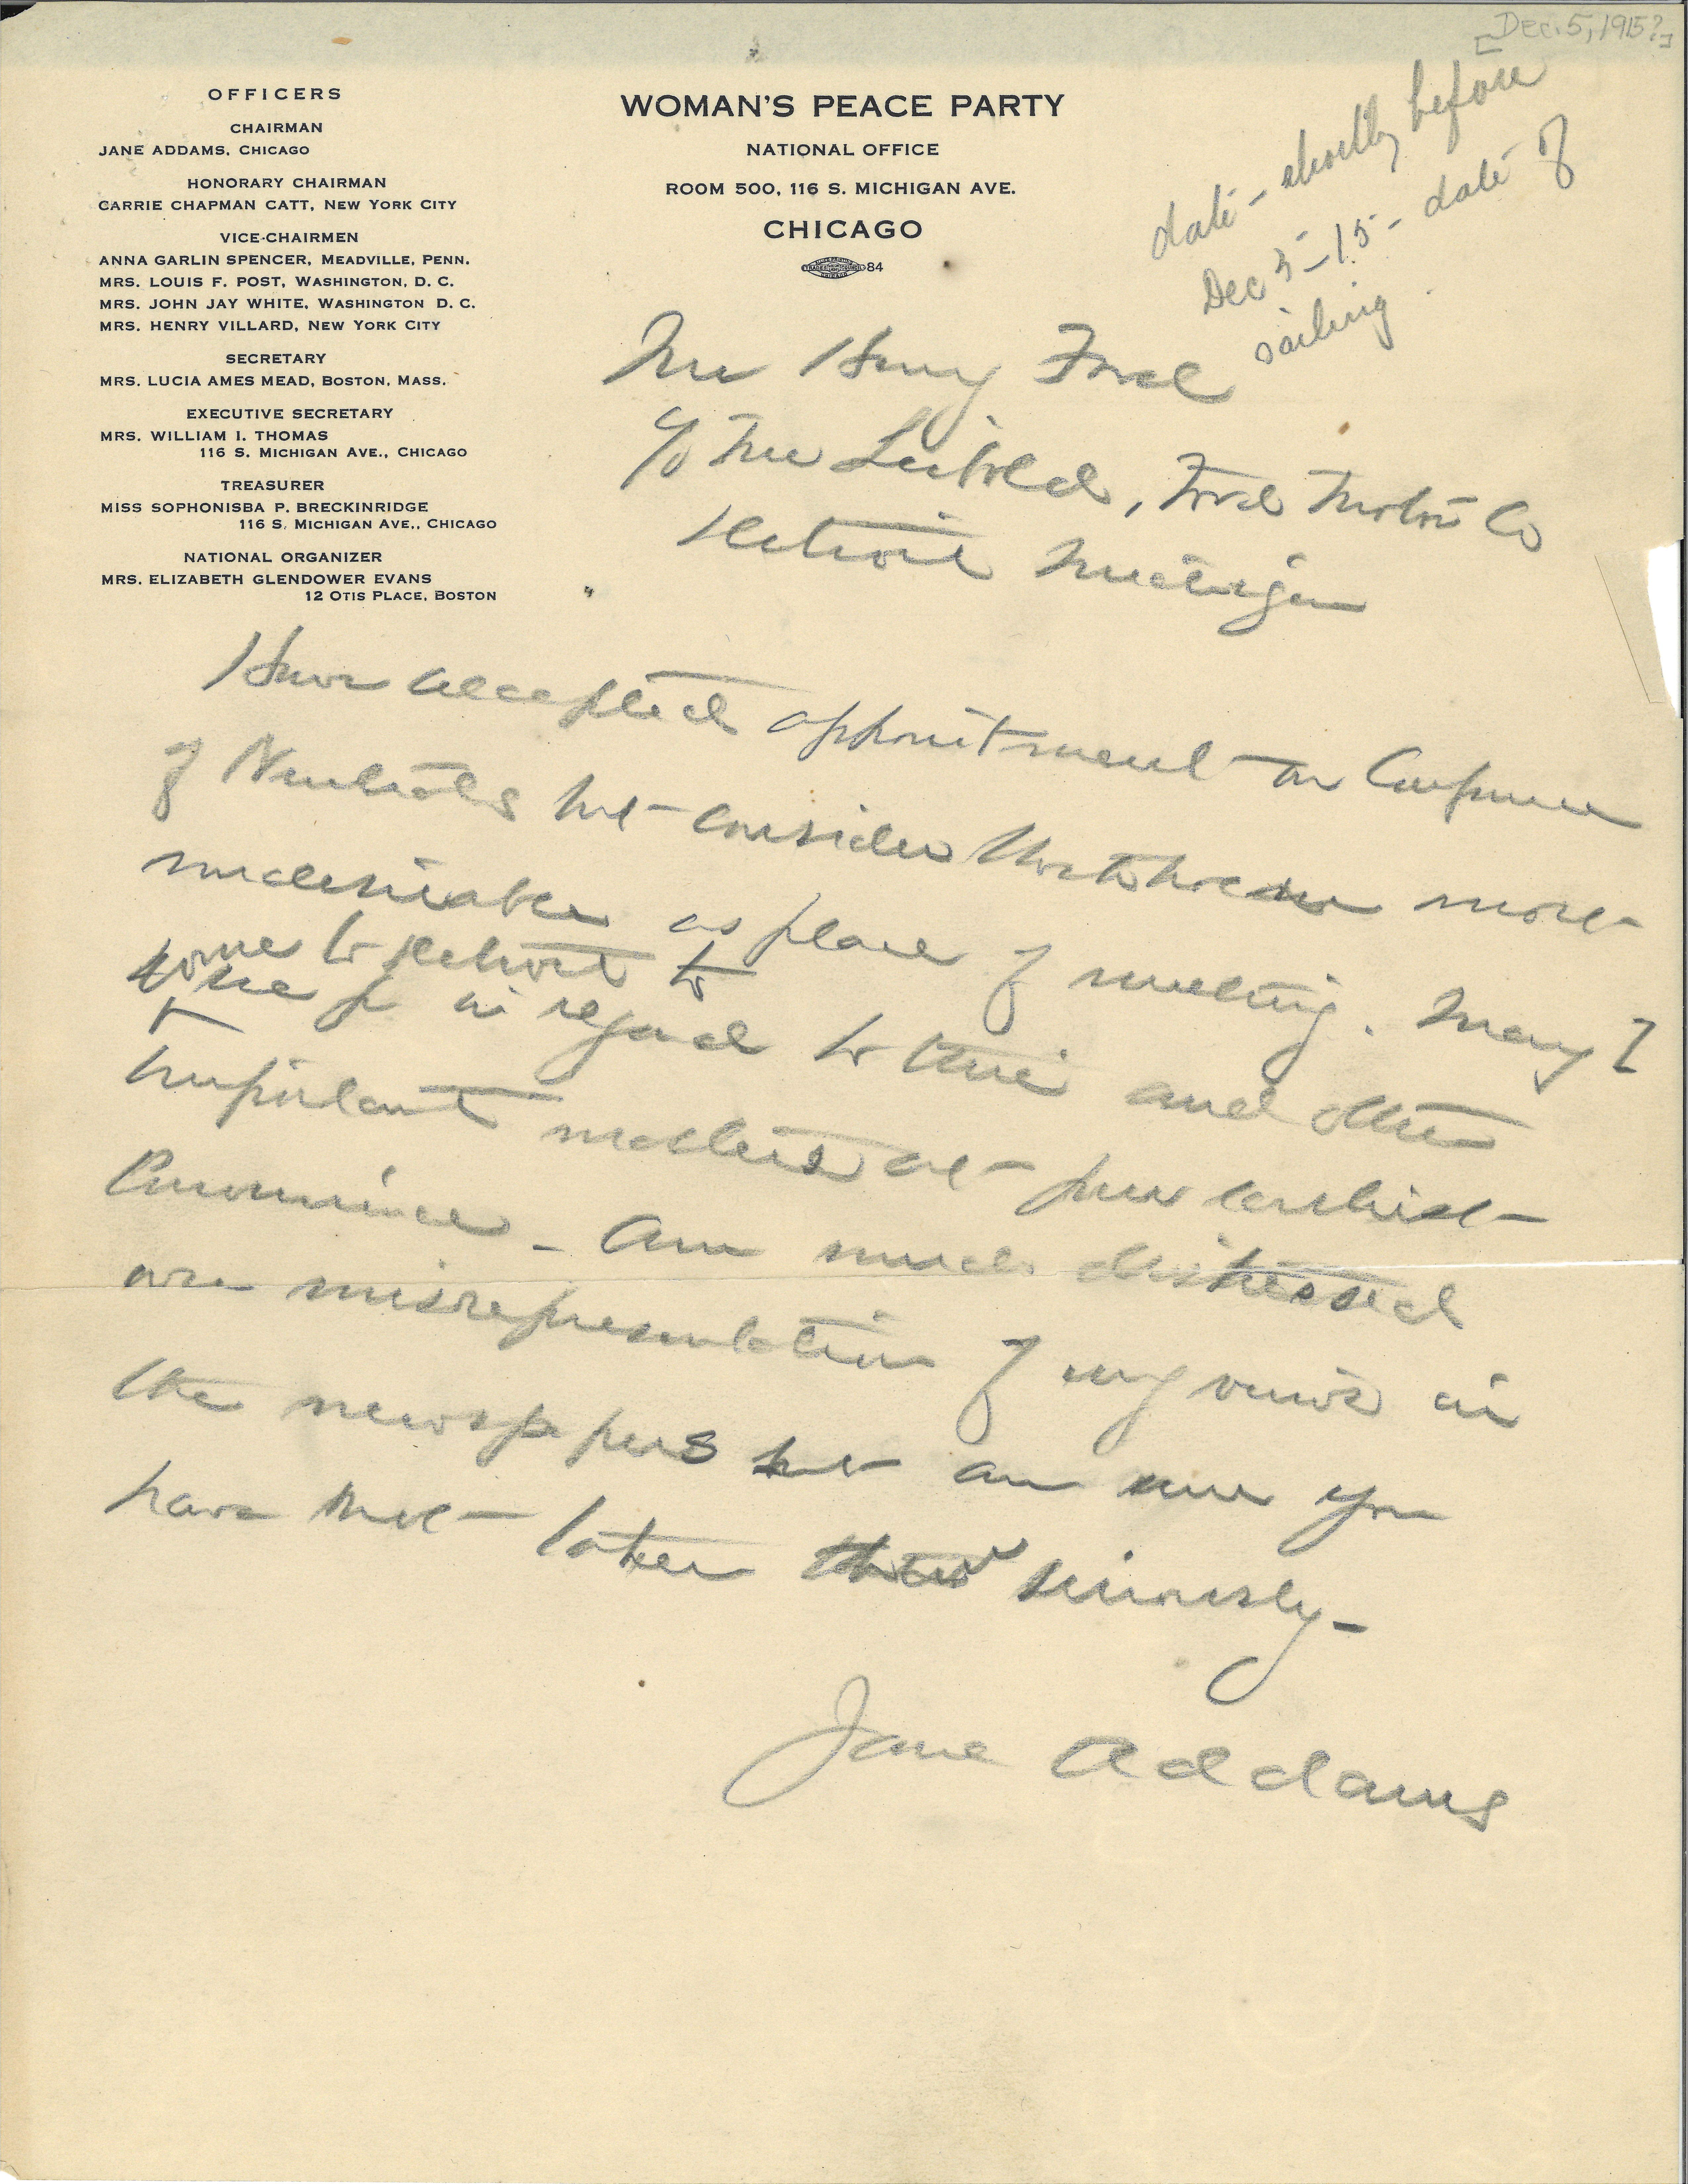 [Dec. 5, 1915?]
date - shortly before
Dec 5 - 15 - date of
sailing
OFFICERS
CHAIRMAN
JANE ADDAMS, CHICAGO
HONORARY CHAIRMAN
CARRIE CHAPMAN CATT, NEW YORK CITY
VICE-CHAIRMEN
ANNA GARLIN SPENCER, MEADVILLE, PENN.
MRS. LOUIS F. POST, WASHINGTON, D. C.
MRS. JOHN JAY WHITE, WASHINGTON D. C.
MRS. HENRY VILLARD, NEW YORK CITY
SECRETARY
MRS. LUCIA AMES MEAD, BOSTON, MASS.
EXECUTIVE SECRETARY
MRS. WILLIAM I. THOMAS
116 S. MICHIGAN AVE., CHICAGO
TREASURER
MISS SOPHONISBA P. BRECKINRIDGE
116 S. MICHIGAN AVE., CHICAGO
NATIONAL ORGANIZER
MRS. ELIZABETH GLENDOWER EVANS
12 OTIS PLACE, BOSTON
WOMAN'S PEACE PARTY
NATIONAL OFFICE
ROOM 500, 116 S. MICHIGAN AVE.
CHICAGO
84
Mr Henry Ford
c/o Mr Liebold, Ford Motor Co
Detroit Michigan
Have accepted appointment on Conference
of Neutrals but consider Stockholm most
undesirable as place of meeting. May I
come to Detroit to
see you in regard to this and other
important matters at your earliest
convenience - Am much distressed
over misrepresentation of my views in
the newspapers but am sure you
have not taken them seriously -
Jane Addams